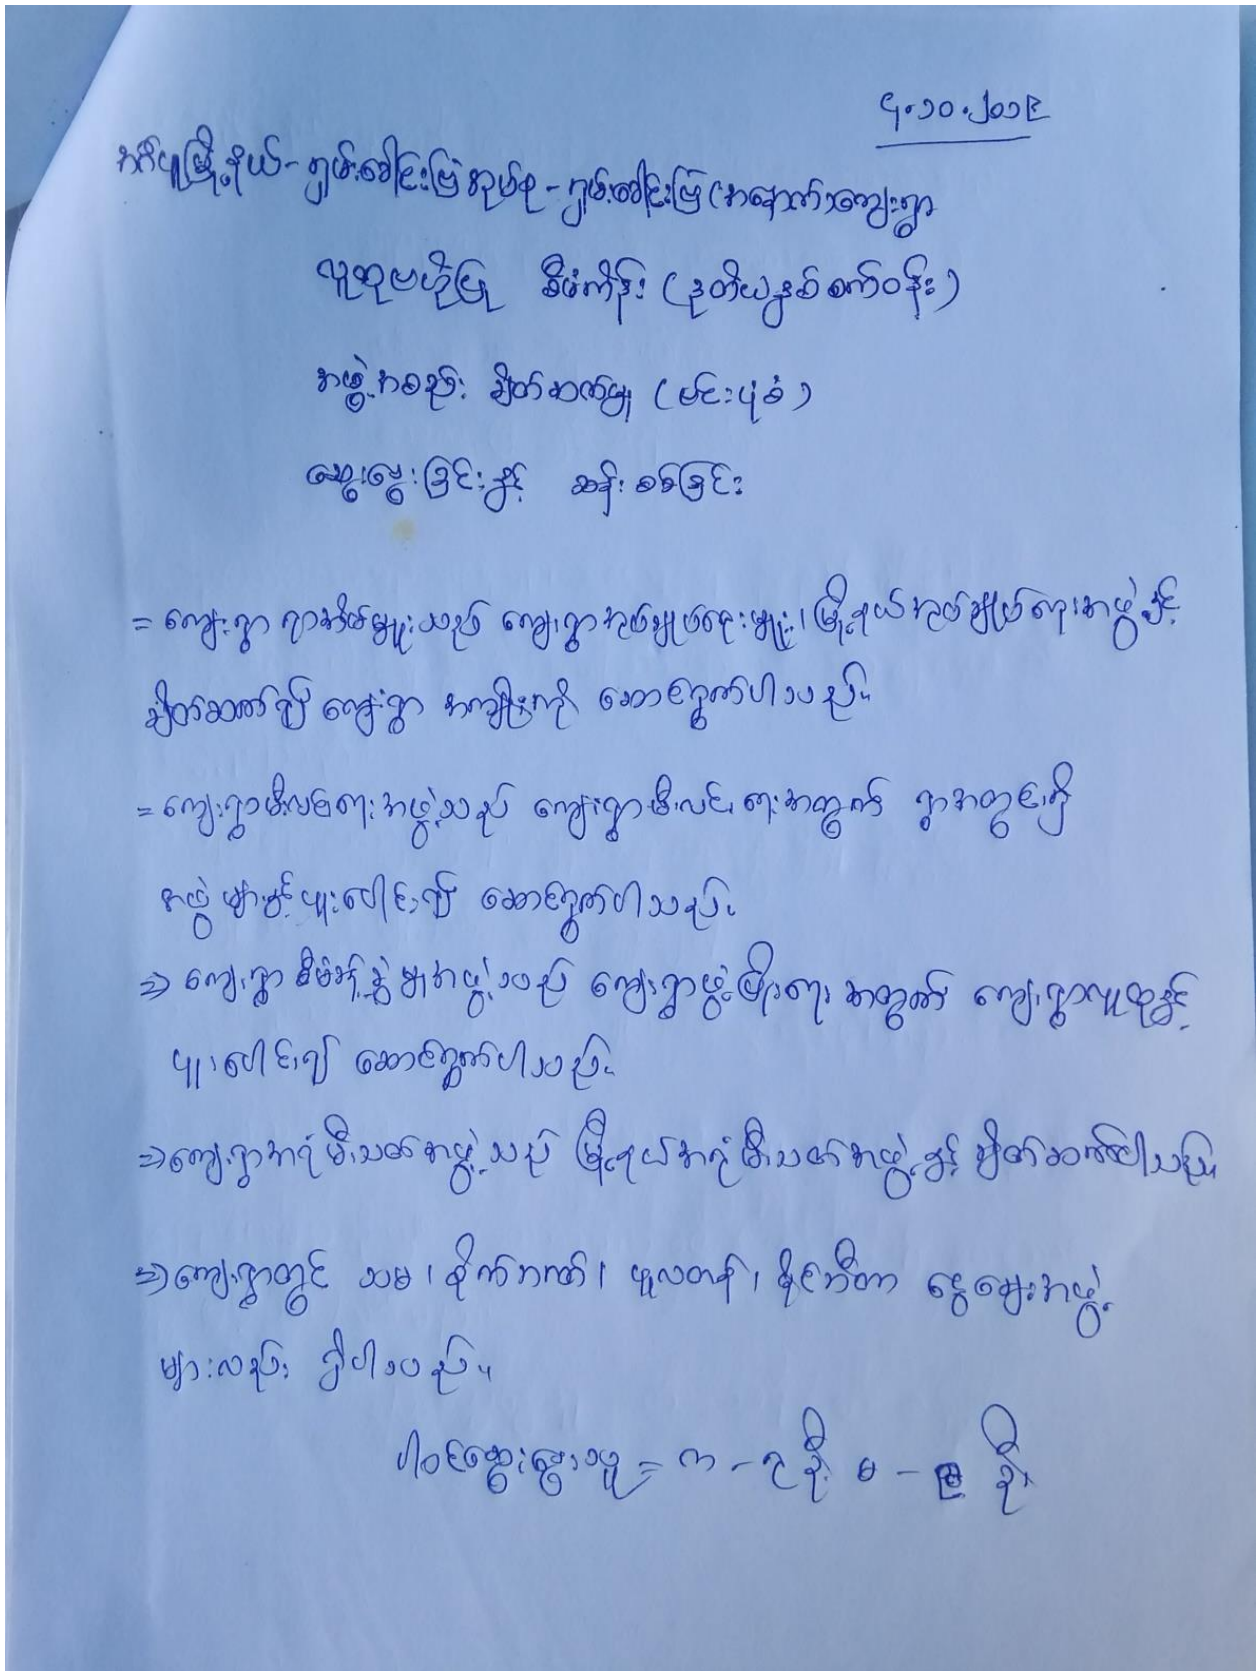 ၄.၁၀.၂၀၁၉
အင်္ဂပူမြို့နယ် - ရှမ်းခေါင်းဖြဲအုပ်စု - ရှမ်းခေါင်းဖြဲ (အနောက်) ကျေးရွာ
လူထုဗဟိုပြု စီမံကိန်း (ဒုတိယနှစ်စက်ဝန်း)
အဖွဲ့အစည်း ချိတ်ဆက်မှု (မင်းပုံစံ)
ဆွေးနွေးခြင်းနှင့် ဆန်းစစ်ခြင်း
= ကျေးရွာ ရာအိမ်မှူးသည် ကျေးရွာအုပ်ချုပ်ရေးမှူး၊ မြို့နယ်အုပ်ချုပ်ရေးအဖွဲ့နှင့်
ချိတ်ဆက်၍ ကျေးရွာ အကျိုးကို ဆောင်ရွက်ပါသည်။
= ကျေးရွာမီးလင်းရေးအဖွဲ့သည် ကျေးရွာမီးလင်းရေးအတွက် ရွာအတွင်းရှိ
အဖွဲ့များနှင့်ပူးပေါင်း၍ ဆောင်ရွက်ပါသည်။
⇒ ကျေးရွာ စီမံအုံ့ခွဲမှုအဖွဲ့သည် ကျေးရွာဖွံ့ဖြိုးရေး အတွက် ကျေးရွာလူထုနှင့်
ပူးပေါင်း၍ ဆောင်ရွက်ပါသည်။
⇒ ကျေးရွာအရံမီးသတ်အဖွဲ့သည် မြို့နယ်အရံမီးသတ်အဖွဲ့နှင့် ချိတ်ဆက်ပါသည်။
⇒ ကျေးရွာတွင် သမ၊ စိုက်ဘဏ်၊ ဖူလတန်၊ ငွေချေးအဖွဲ့
များလည်း ရှိပါသည်။
ပါဝင်ဆွေးနွေးသူ = က - ၃ ဦး မ - ဦး